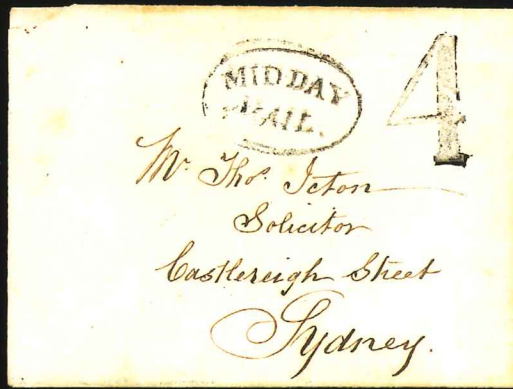 MIDDAY
MAIL.
4
Mr. Thos. Icton
Solicitor
Castlereigh Street
Sydney.